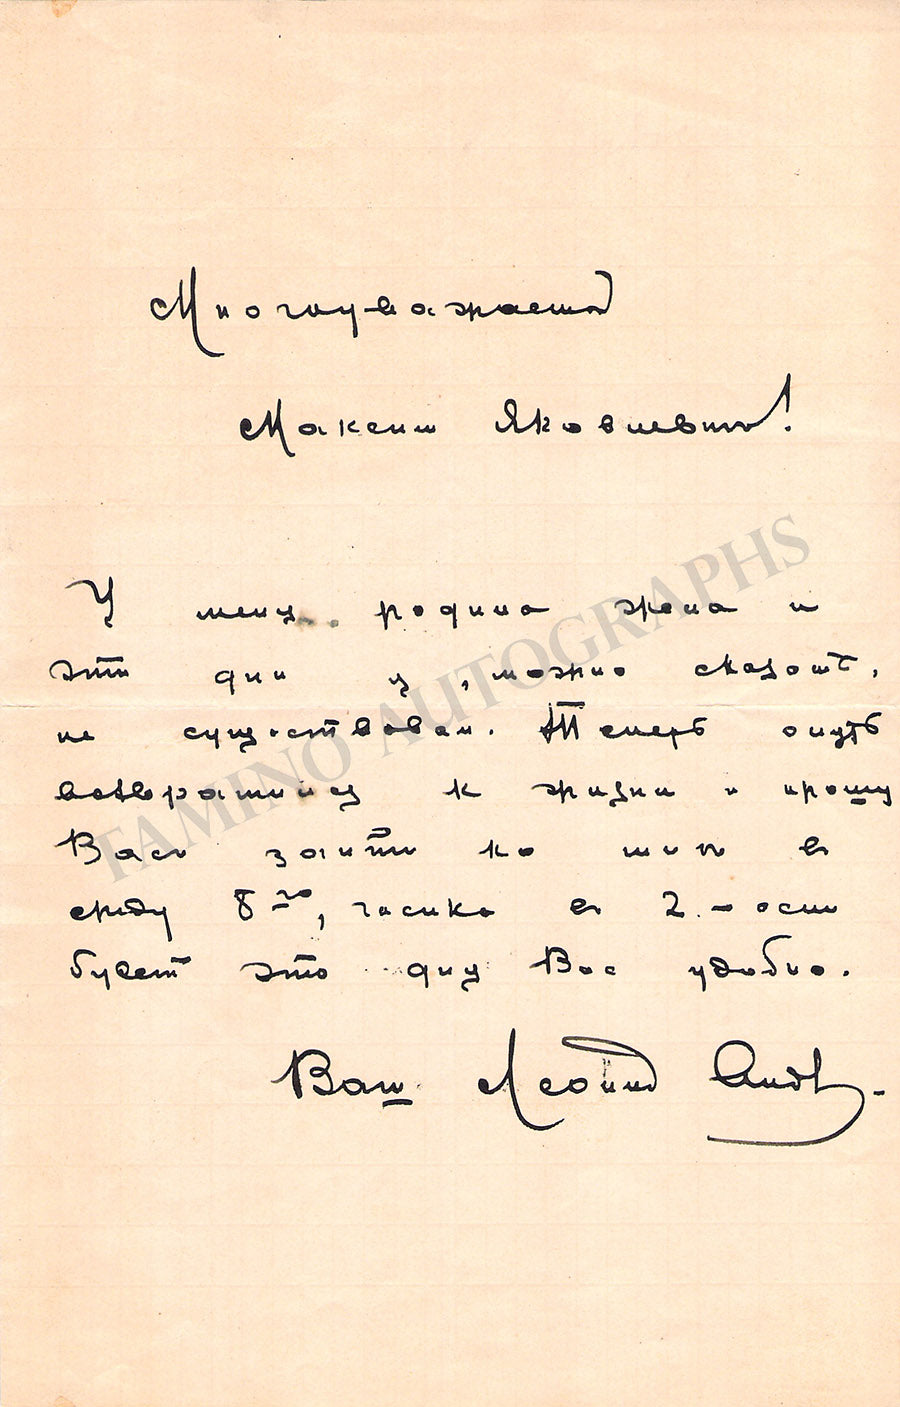 Многоуважаемый
Максим Яковлевич!
У меня родила жена и
эти дни я, можно сказать,
не существовал. Теперь опять
возвратился к жизни и прошу
Вас зайти ко мне в
среду 8го, часика в 2 - если
будет это для Вас удобно.
Ваш Леонид Андр
TAMINO AUTOGRAPHS